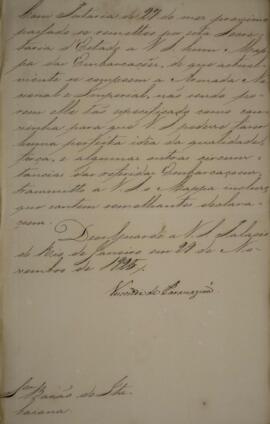 Com Portaria de 27 do mez proximo
passado se remetteo por esta Secre
taria d'Estado a V S hum Mappa
das Embarcações, de que actual
mente se compoem a Armada Na
cional e Imperial, não sendo po
rem elle tão especificado como con
vinha para que V S podesse fazer
huma perfeita idea da qualidade,
força, e algumas outras circuns
tancias das referidas Embarcaçoens,
transmitto a V S o Mappa incluso
que contem semelhantes declara
coens.
Deos Guarde a V S Palacio
do Rio de Janeiro em 29 de No
vembro de 1825.
Visconde de Paranaguá
Snr Barão de Ita
baiana.